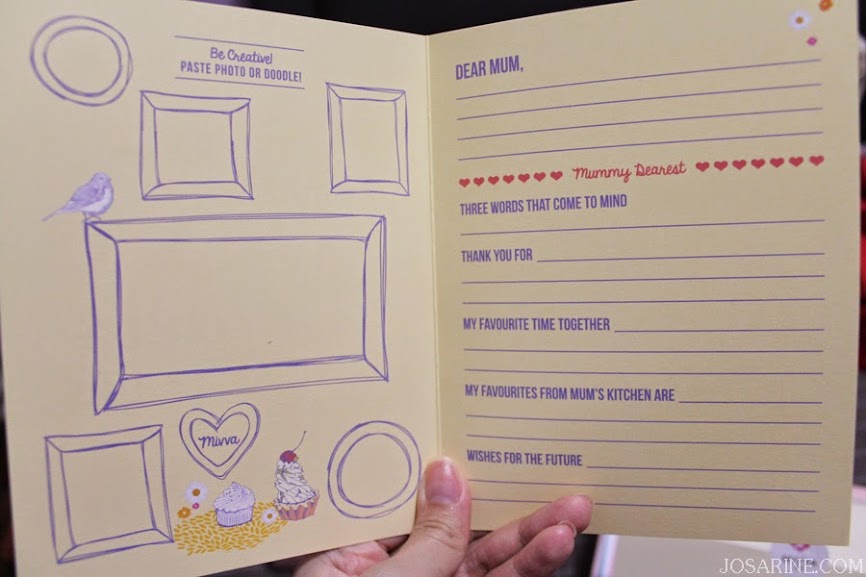 Be Creative!
PASTE PHOTO OR DOODLE!
Mivva
DEAR MUM,
Mummy Dearest
THREE WORDS THAT COME TO MIND
THANK YOU FOR
MY FAVOURITE TIME TOGETHER
MY FAVOURITES FROM MUM'S KITCHEN ARE
WISHES FOR THE FUTURE
JOSARINE.COM